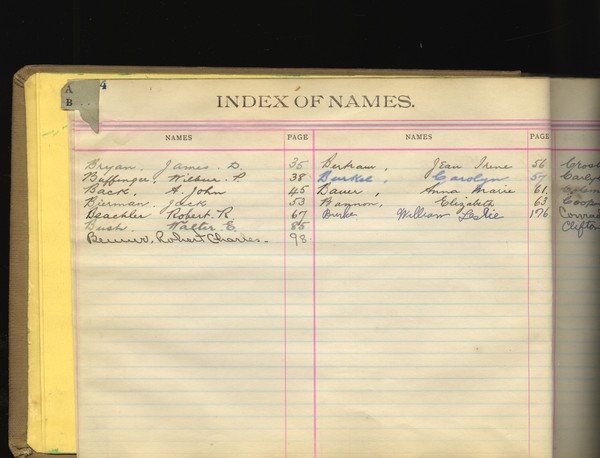 A
B
4
INDEX OF NAMES.
NAMES PAGE NAMES PAGE
Bryan, James D. 35 Bertram, Jean Irene 56
Baffinger, Wilbur P. 38 Burkel, Carolyn 57
Back, A. John 45 Bauer, Anna Marie 61
Bierman, Jack 53 Bannon, Elizabeth 63
Beachler Robert R 67 Burke William Leslie 176
Bush, Walter E. 85
Robert Charles. 98.
Crosb
Coop
Conrad
Clifton